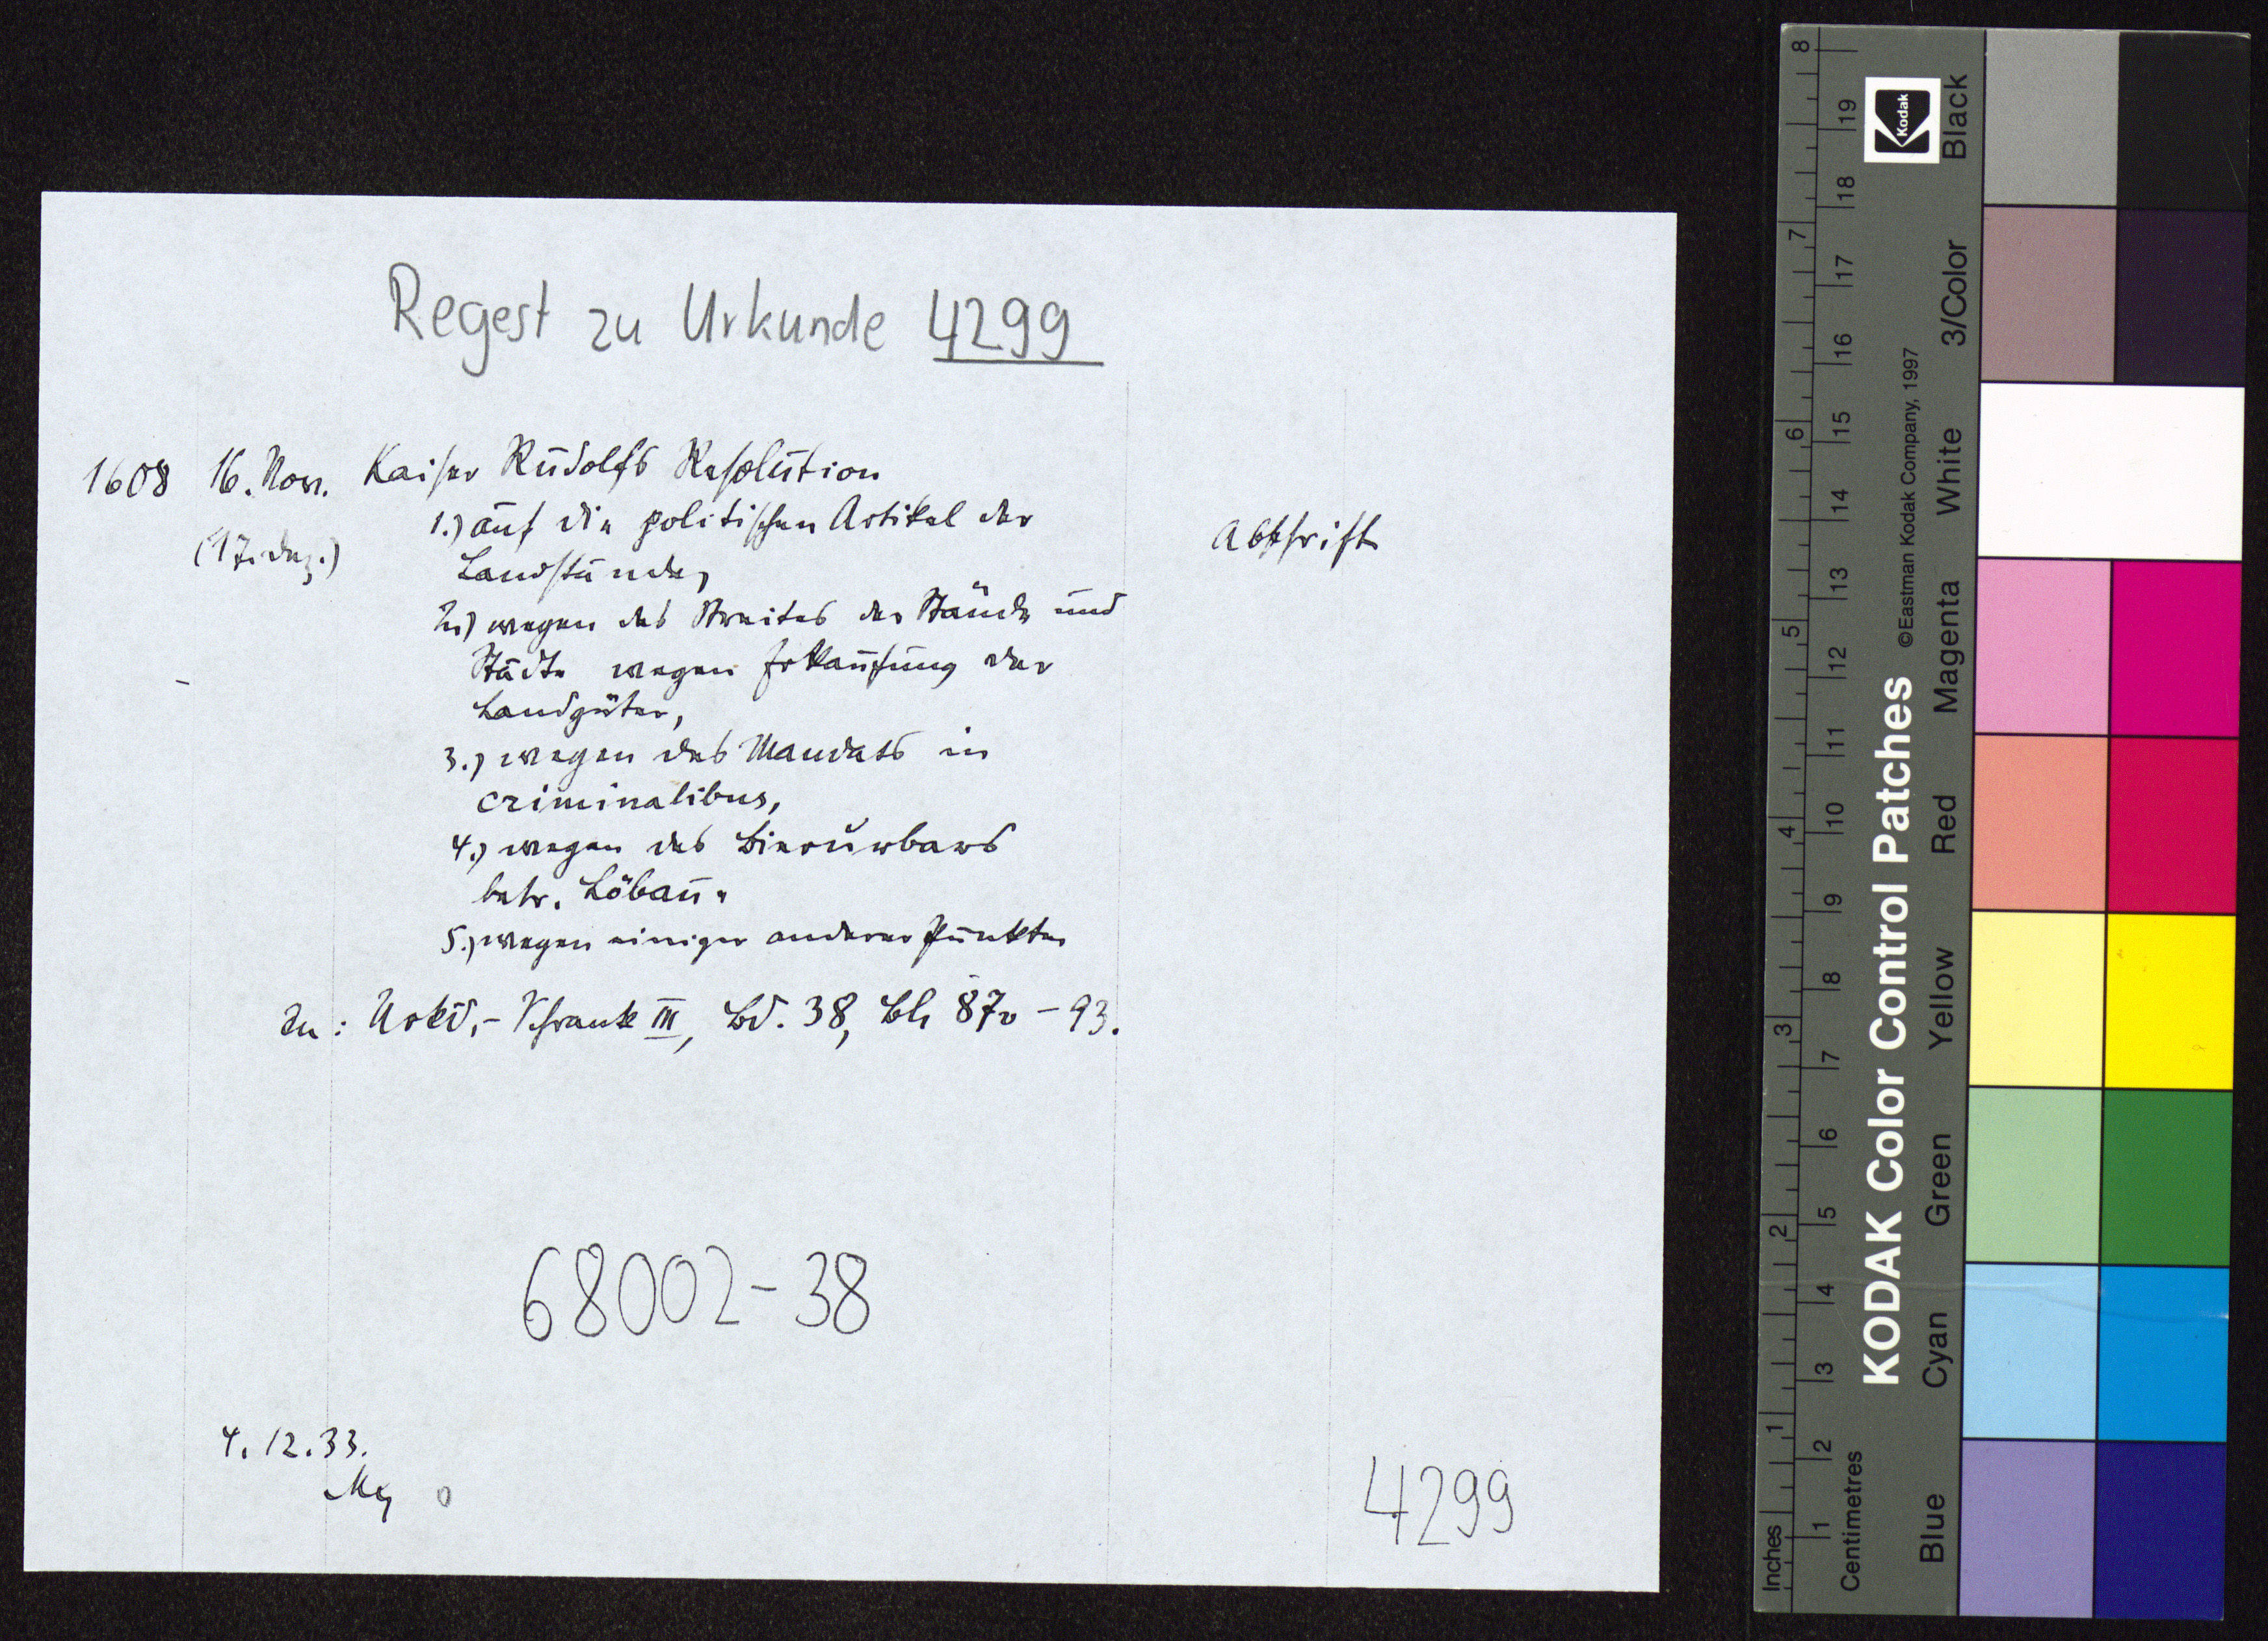 Regest zu Urkunde 4299
1608 16. Nov. Kaiser Rudolfs Resolution
(17. dez.)
1.) auf die politischen Artikel der
Landstände,
Abschrift
2.) wegen des Streites der Stände und
Städte wegen Erkaufung der
Landgüter,
3.) wegen des Mandats in
criminalibus,
4.) wegen des Bierurbars
betr. Löbau.
5.) wegen einiger anderer Punkte
In: Urkd.-Schrank III, Bd. 38, Bl. 87v - 93.
68002-38
4. 12. 33.
4299
KODAK Color Control Patches
©Eastman Kodak Company, 1997
Kodak
Blue Cyan Green Yellow Red Magenta White 3/Color Black
Inches 1 2 3 4 5 6 7 8
Centimetres 1 2 3 4 5 6 7 8 9 10 11 12 13 14 15 16 17 18 19